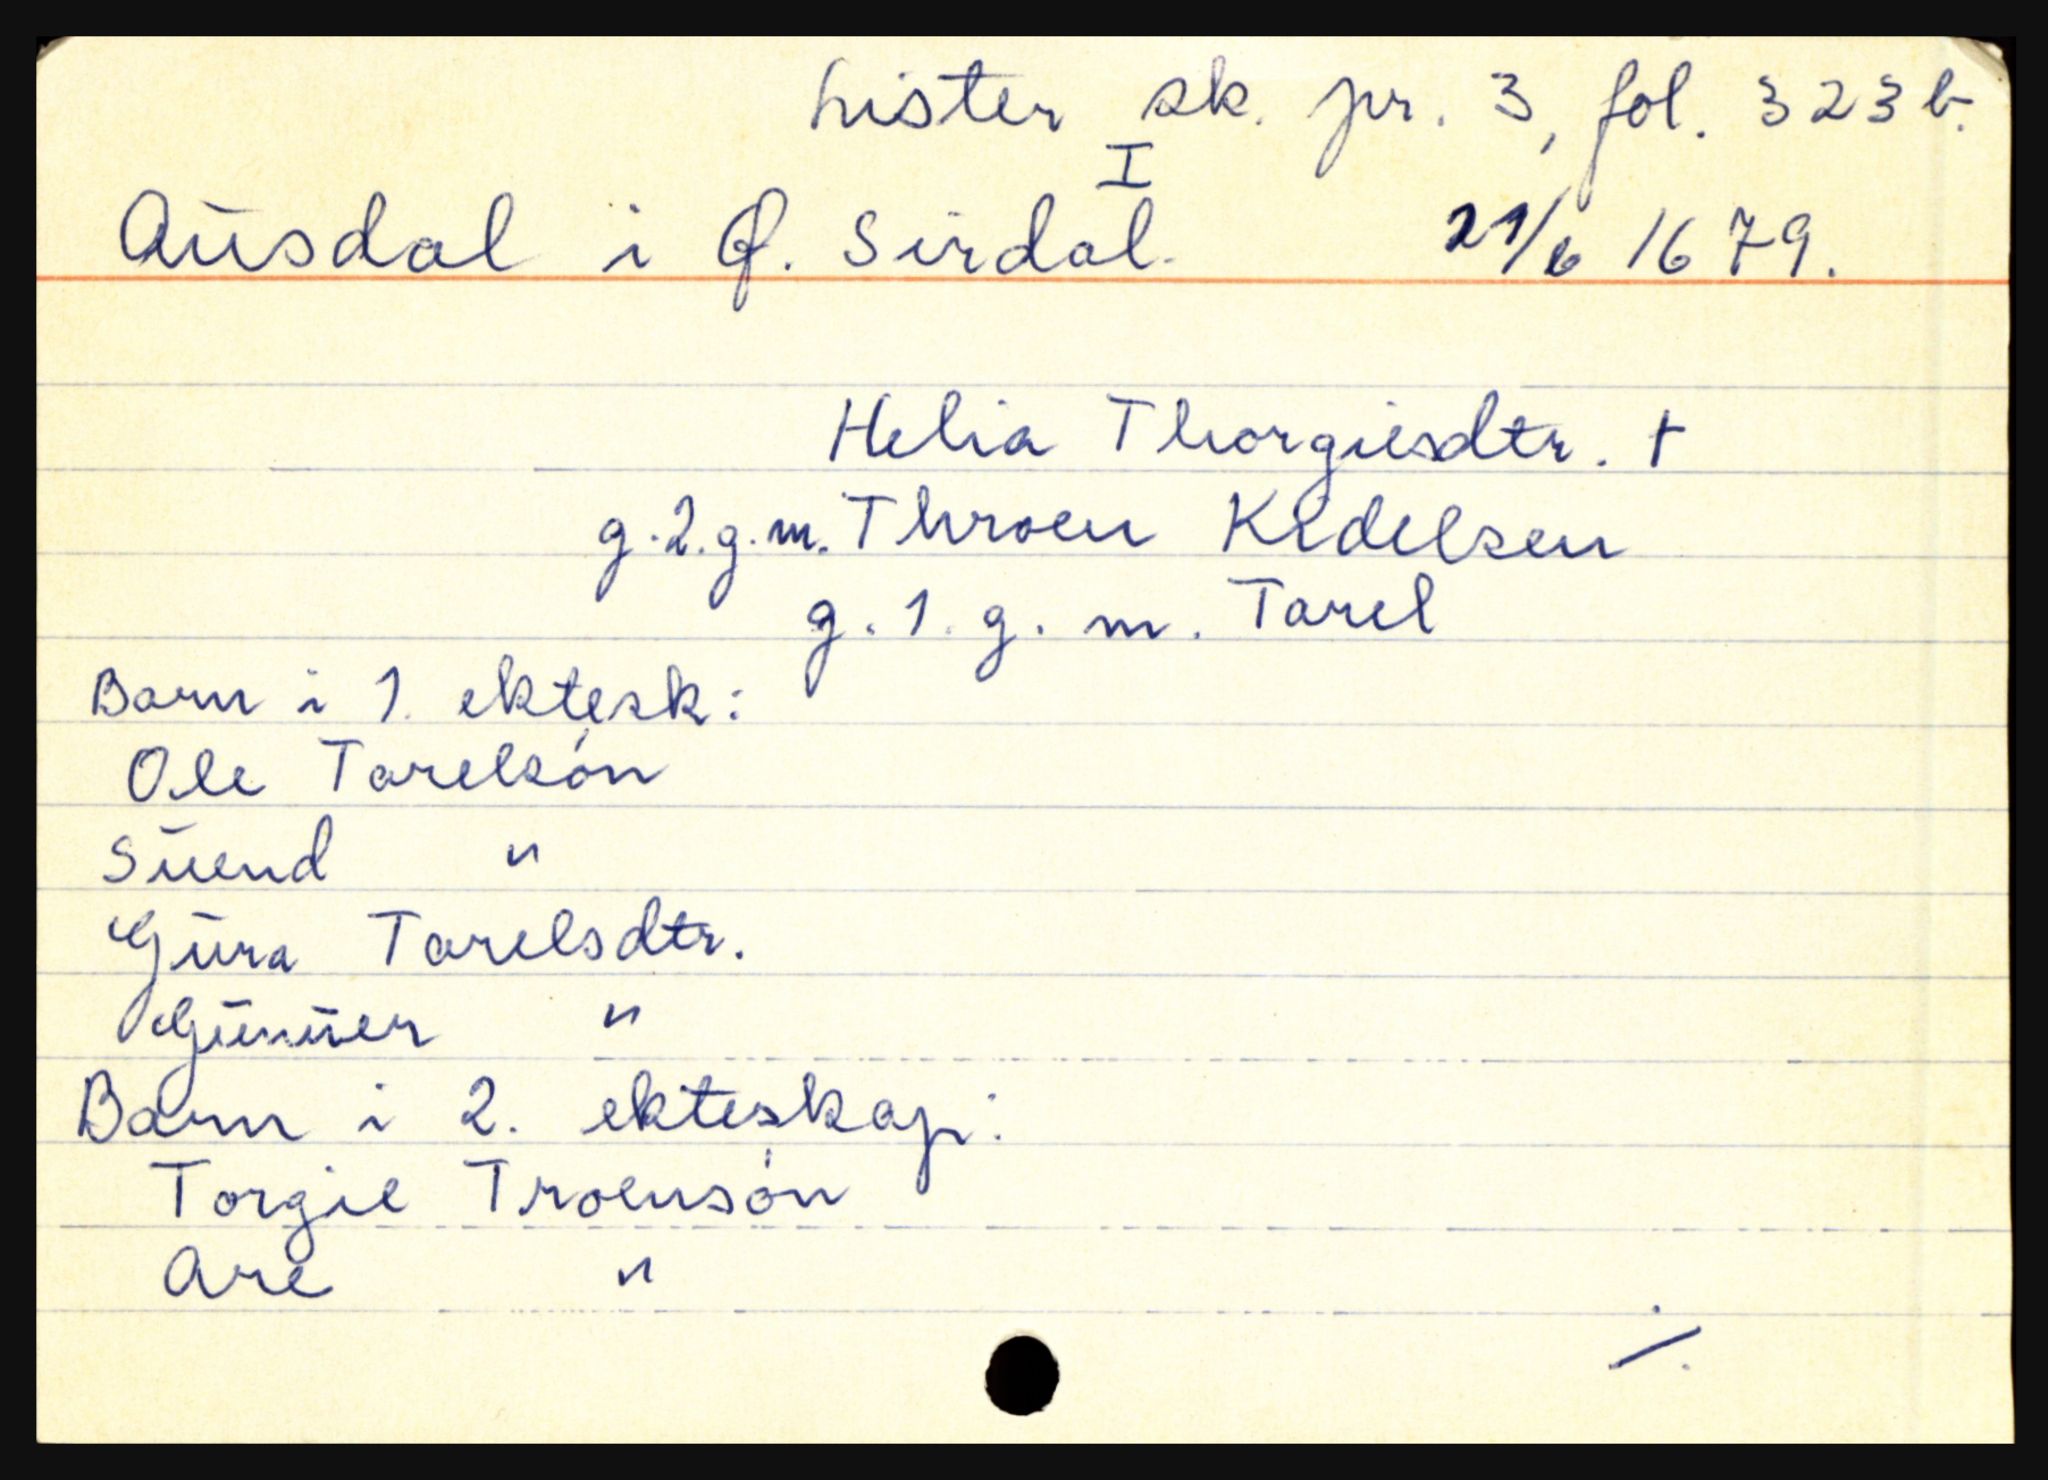 Lister sk. pr. 3, fol. 323 b.
I
Ausdal i Ø. Sirdal. 21/6 1679.
Helia Thorgiesdtr. †
g. 2. g. m. Throen Kidelsen
g. 1. g. m. Tarel
Barn i 1. ektesk:
Ole Tarelsón
Suend "
Gura Tarelsdtr.
Gunuer "
Barn i 2. ekteskap:
Torgie Troensón
Are "
./.